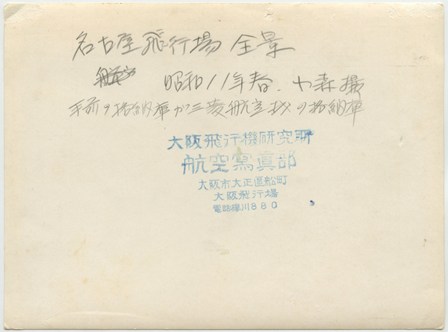 名古屋飛行場全景
昭和11年春
手前の格納庫が三菱航空機の格納庫
大阪飛行機研究所
航空寫眞部
大阪市大正區船町
大阪飛行場
電話櫻川880